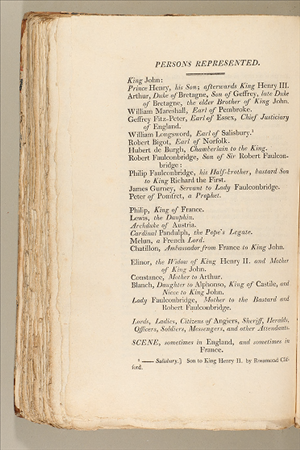 PERSONS REPRESENTED.
King John:
Prince Henry, his Son; afterwards King Henry III.
Arthur, Duke of Bretagne, Son of Geffrey, late Duke
of Bretagne, the elder Brother of King John.
William Mareshall, Earl of Pembroke.
Geffrey Fitz-Peter, Earl of Essex, Chief Justiciary
of England.
William Longsword, Earl of Salisbury.¹
Robert Bigot, Earl of Norfolk.
Hubert de Burgh, Chamberlain to the King.
Robert Faulconbridge, Son of Sir Robert Faulcon-
bridge:
Philip Faulconbridge, his Half-brother, bastard Son
to King Richard the First.
James Gurney, Servant to Lady Faulconbridge.
Peter of Pomfret, a Prophet.
Philip, King of France.
Lewis, the Dauphin.
Archduke of Austria.
Cardinal Pandulph, the Pope's Legate.
Melun, a French Lord.
Chatillon, Ambassador from France to King John.
Elinor, the Widow of King Henry II. and Mother
of King John.
Constance, Mother to Arthur.
Blanch, Daughter to Alphonso, King of Castile, and
Niece to King John.
Lady Faulconbridge, Mother to the Bastard and
Robert Faulconbridge.
Lords, Ladies, Citizens of Angiers, Sheriff, Heralds,
Officers, Soldiers, Messengers, and other Attendants.
SCENE, sometimes in England, and sometimes in
France.
¹ —— Salisbury.] Son to King Henry II. by Rosamond Clif-
ford.